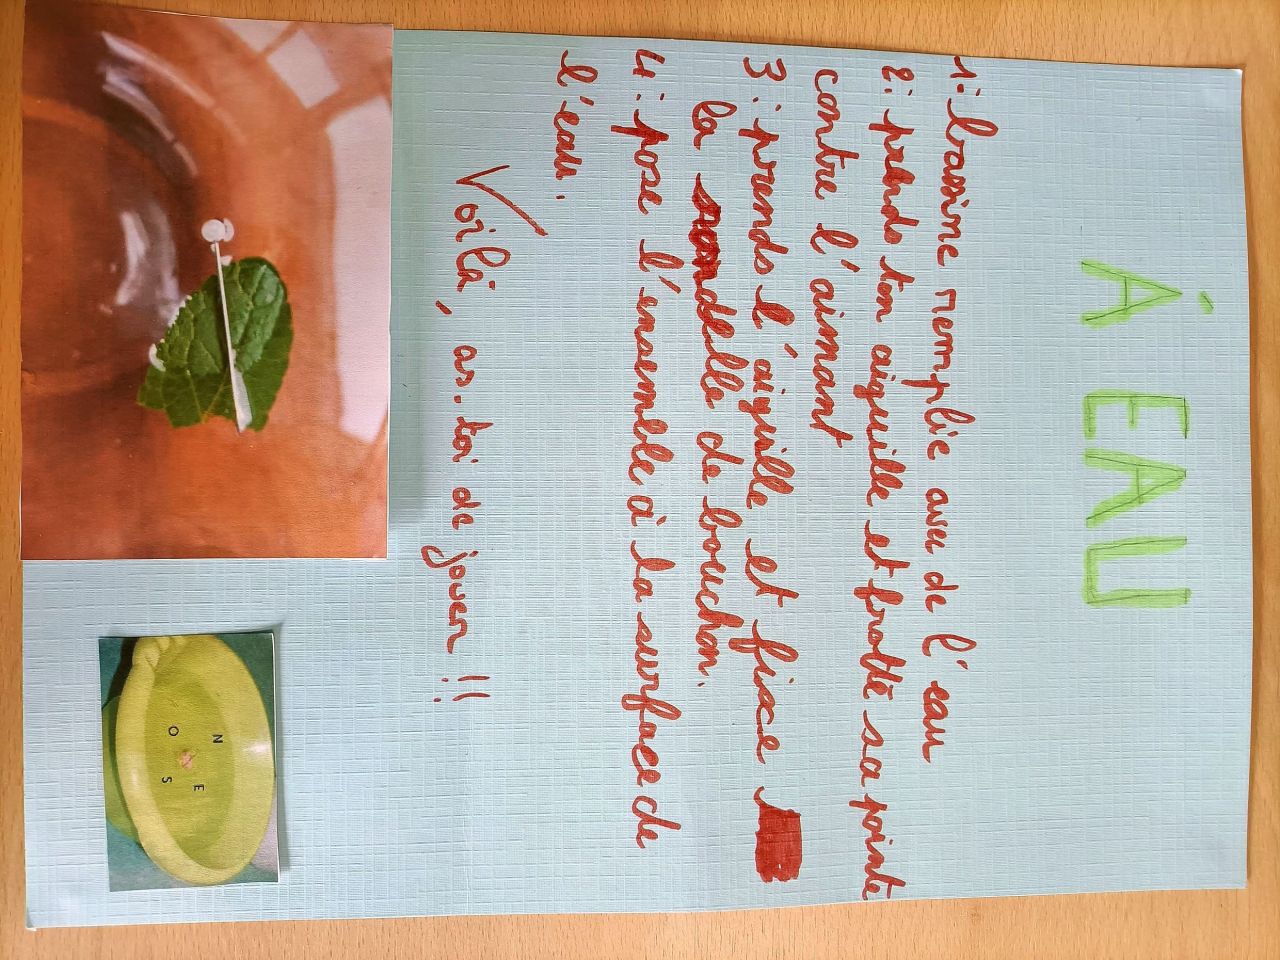 Á EAU
1: bassine remplie avec de l'eau
2: prends ton aiguille et frotte sa pointe
contre l'aimant
3: prends l'aiguille et fixe
la rondelle de bouchon.
4: pose l'ensemble à la surface de
l'eau.
Voilà, as-toi de jouer !!
N
E
O
S